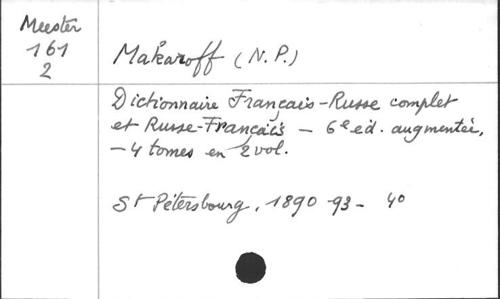 Meester
161
2
Makaroff (N.P.)
Dictionnaire Français-Russe complet
et Russe-Français - 6e ed. augmentée,
- 4 tomes en 2 vol.
St Pétersbourg, 1890-93 - 4o